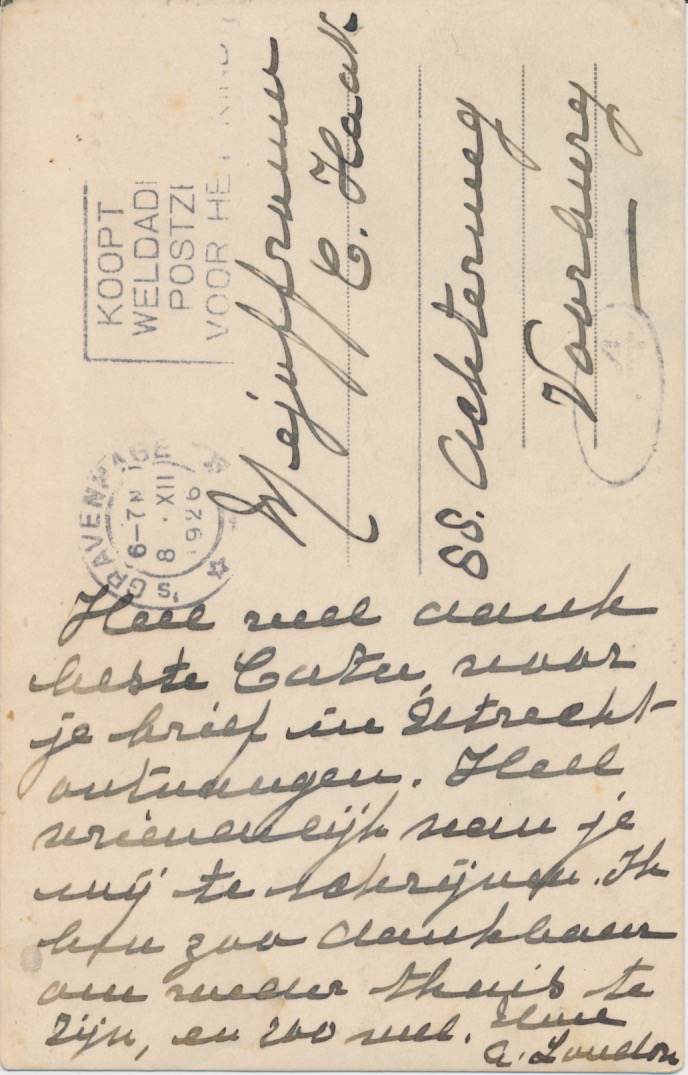 KOOPT
WELDADI
POSTZI
VOOR HET KIND
'S GRAVENHAGE
6-7N
8 · XII
1926
Mejuffrouw
C. Haak
88. Achterweg
Voorburg
Heel veel dank
beste Cateau, voor
je brief in Utrecht
ontvangen. Heel
vriendelijk van je
mij te schrijven. Ik
ben zoo dankbaar
om weder thuis te
zijn, en zoo wel.
A. Loudon